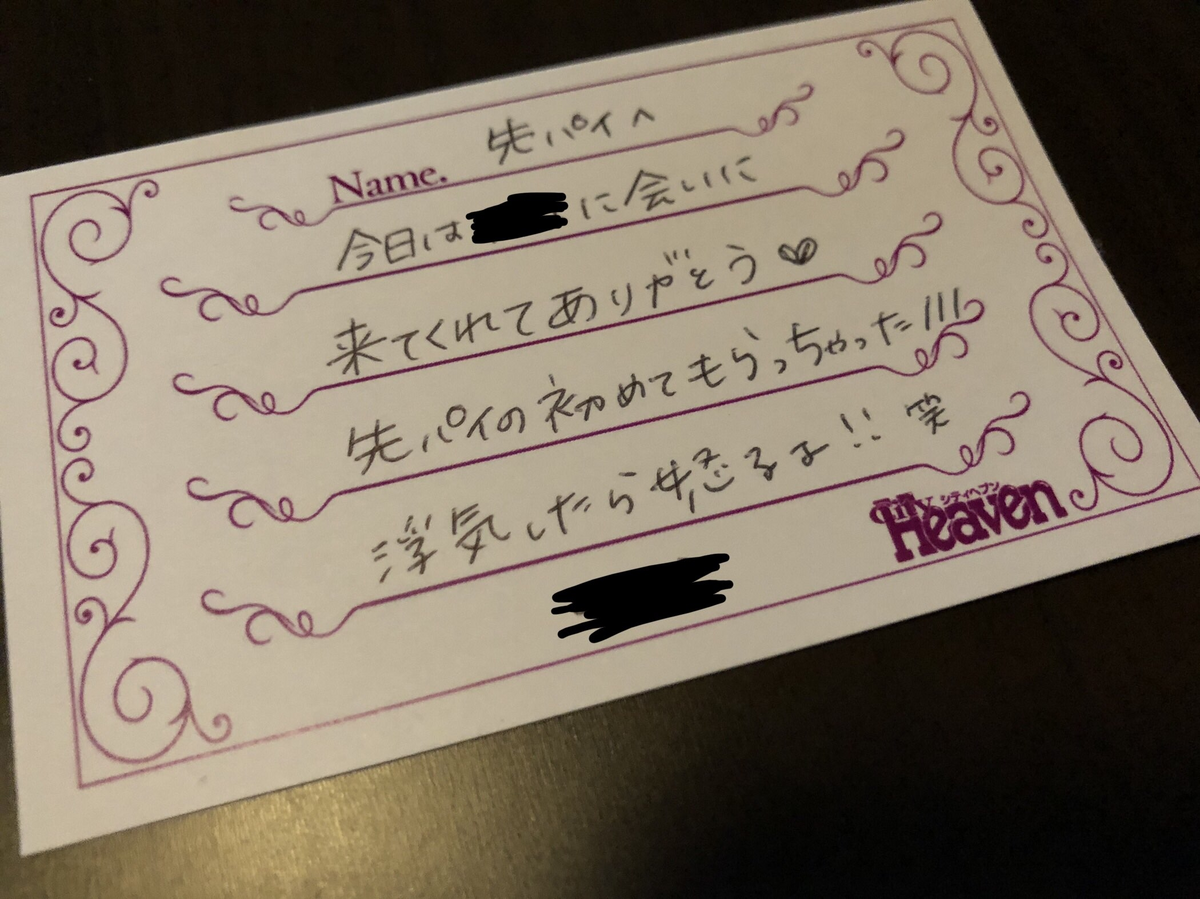 Name. 先パイへ
今日は に会いに
来てくれてありがとう♡
先パイの初めてもらっちゃった!!!
浮気したら怒るよ!! 笑
City シティヘブン
Heaven